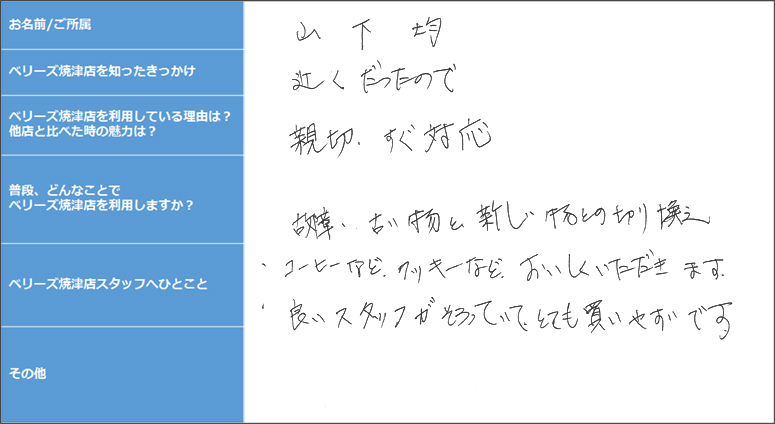 お名前/ご所属
山下 均
ベリーズ焼津店を知ったきっかけ
近くだったので
ベリーズ焼津店を利用している理由は？
他店と比べた時の魅力は？
親切、すぐ対応
普段、どんなことで
ベリーズ焼津店を利用しますか？
故障、古い物と新しい物との切り換え
ベリーズ焼津店スタッフへひとこと
・コーヒーなど、クッキーなど、おいしくいただきます。
・良いスタッフがそろっていて、とても買いやすいです。
その他